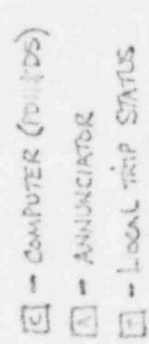 C - COMPUTER
A - ANNUNCIATOR
T - LOCAL TRIP STATUS